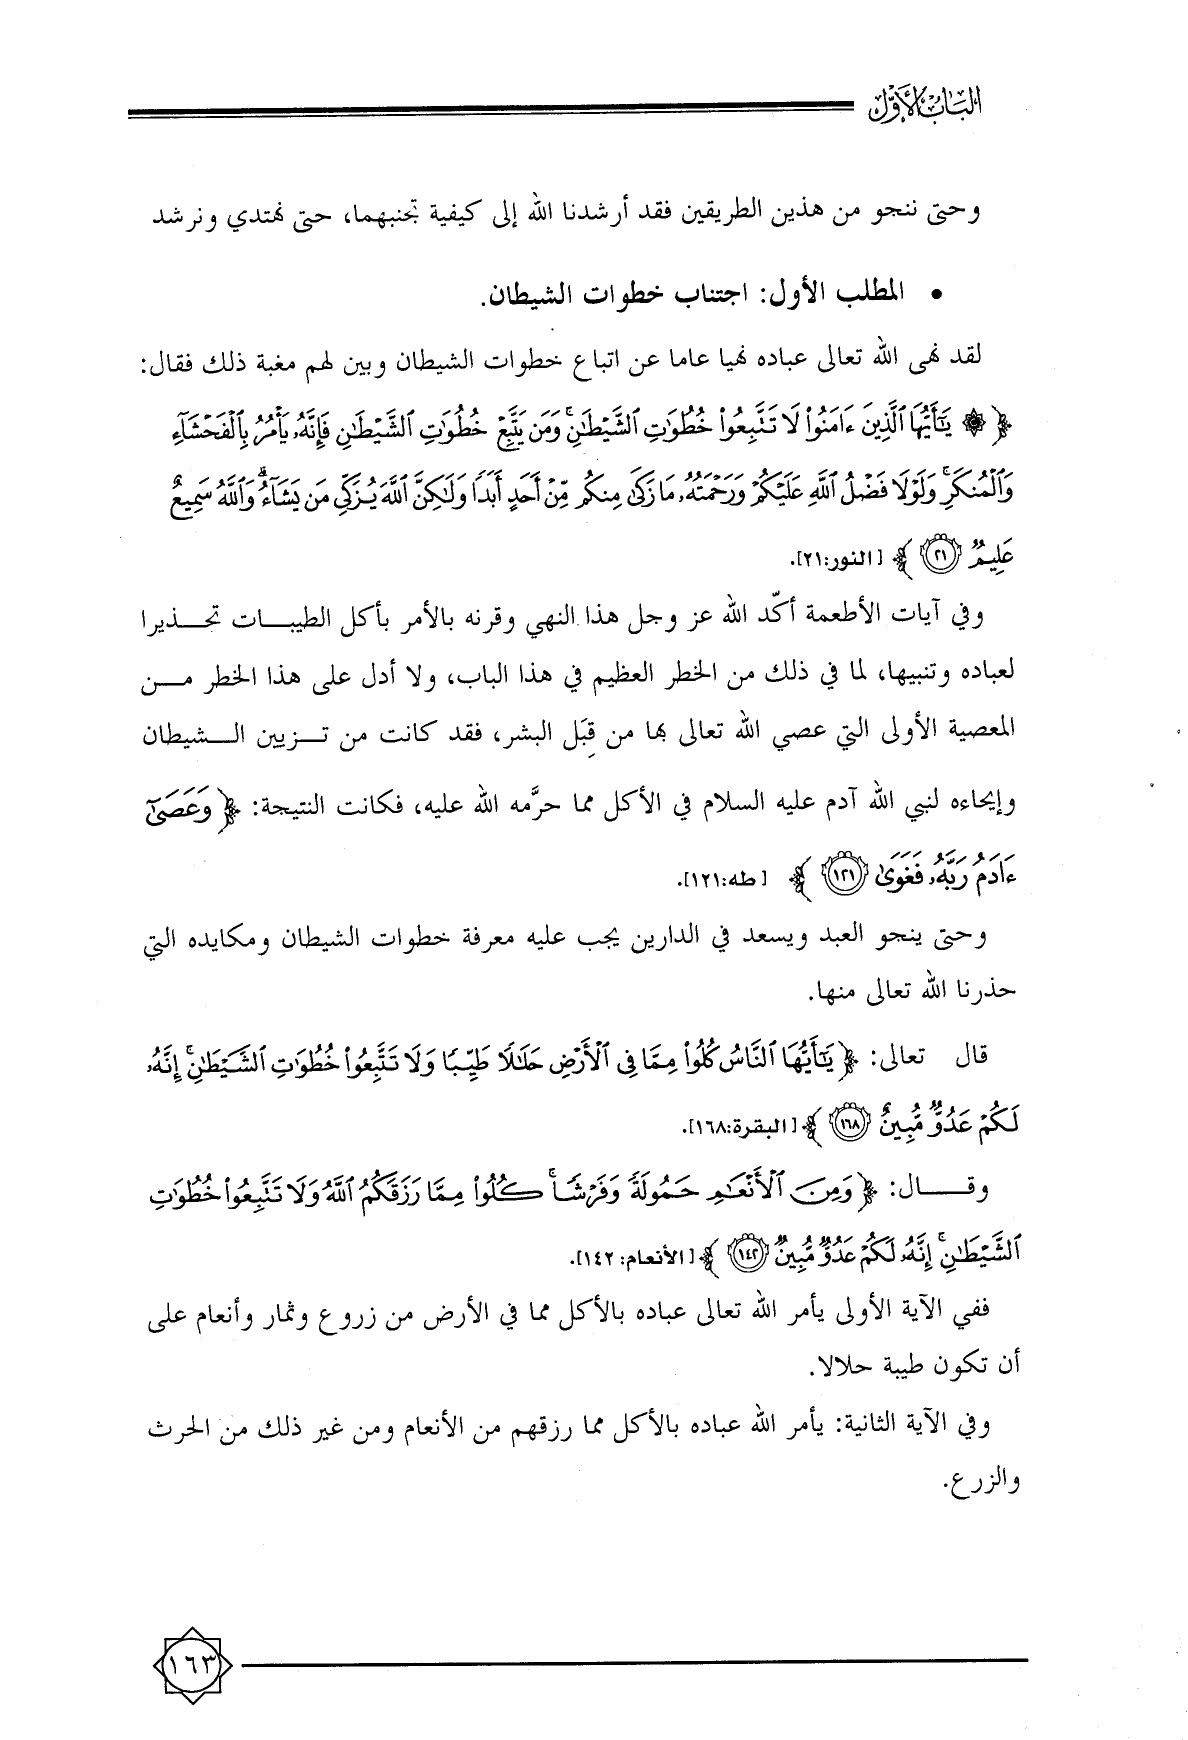 الباب الأول
وحتى ننجو من هذين الطريقين فقد أرشدنا الله إلى كيفية تجنبهما، حتى نهتدي ونرشد
• المطلب الأول: اجتناب خطوات الشيطان.
لقد نهى الله تعالى عباده نهيا عاما عن اتباع خطوات الشيطان وبين لهم مغبة ذلك فقال:
﴿ ۞ يَـٰٓأَيُّهَا ٱلَّذِينَ ءَامَنُوا۟ لَا تَتَّبِعُوا۟ خُطُوَٰتِ ٱلشَّيْطَـٰنِ ۚ وَمَن يَتَّبِعْ خُطُوَٰتِ ٱلشَّيْطَـٰنِ فَإِنَّهُۥ يَأْمُرُ بِٱلْفَحْشَآءِ
وَٱلْمُنكَرِ ۚ وَلَوْلَا فَضْلُ ٱللَّهِ عَلَيْكُمْ وَرَحْمَتُهُۥ مَا زَكَىٰ مِنكُم مِّنْ أَحَدٍ أَبَدًا وَلَـٰكِنَّ ٱللَّهَ يُزَكِّى مَن يَشَآءُ ۗ وَٱللَّهُ سَمِيعٌ
عَلِيمٌ ﴿٢١﴾ ﴾ [النور:٢١].
وفي آيات الأطعمة أكّد الله عز وجل هذا النهي وقرنه بالأمر بأكل الطيبـــات تحـــذيرا
لعباده وتنبيها، لما في ذلك من الخطر العظيم في هذا الباب، ولا أدل على هذا الخطر مـــن
المعصية الأولى التي عصي الله تعالى بها من قِبَل البشر، فقد كانت من تـــزيين الـــشيطان
وإيحاءه لنبي الله آدم عليه السلام في الأكل مما حرَّمه الله عليه، فكانت النتيجة: ﴿ وَعَصَىٰٓ
ءَادَمُ رَبَّهُۥ فَغَوَىٰ ﴿١٢١﴾ ﴾ [طه:١٢١].
وحتى ينجو العبد ويسعد في الدارين يجب عليه معرفة خطوات الشيطان ومكايده التي
حذرنا الله تعالى منها.
قال تعالى: ﴿ يَـٰٓأَيُّهَا ٱلنَّاسُ كُلُوا۟ مِمَّا فِى ٱلْأَرْضِ حَلَـٰلًا طَيِّبًا وَلَا تَتَّبِعُوا۟ خُطُوَٰتِ ٱلشَّيْطَـٰنِ ۚ إِنَّهُۥ
لَكُمْ عَدُوٌّ مُّبِينٌ ﴿١٦٨﴾ ﴾ [البقرة:١٦٨].
وقـــال: ﴿ وَمِنَ ٱلْأَنْعَـٰمِ حَمُولَةً وَفَرْشًا ۚ كُلُوا۟ مِمَّا رَزَقَكُمُ ٱللَّهُ وَلَا تَتَّبِعُوا۟ خُطُوَٰتِ
ٱلشَّيْطَـٰنِ ۚ إِنَّهُۥ لَكُمْ عَدُوٌّ مُّبِينٌ ﴿١٤٢﴾ ﴾ [الأنعام: ١٤٢].
ففي الآية الأولى يأمر الله تعالى عباده بالأكل مما في الأرض من زروع وثمار وأنعام على
أن تكون طيبة حلالا.
وفي الآية الثانية: يأمر الله عباده بالأكل مما رزقهم من الأنعام ومن غير ذلك من الحرث
والزرع.
١٦٣